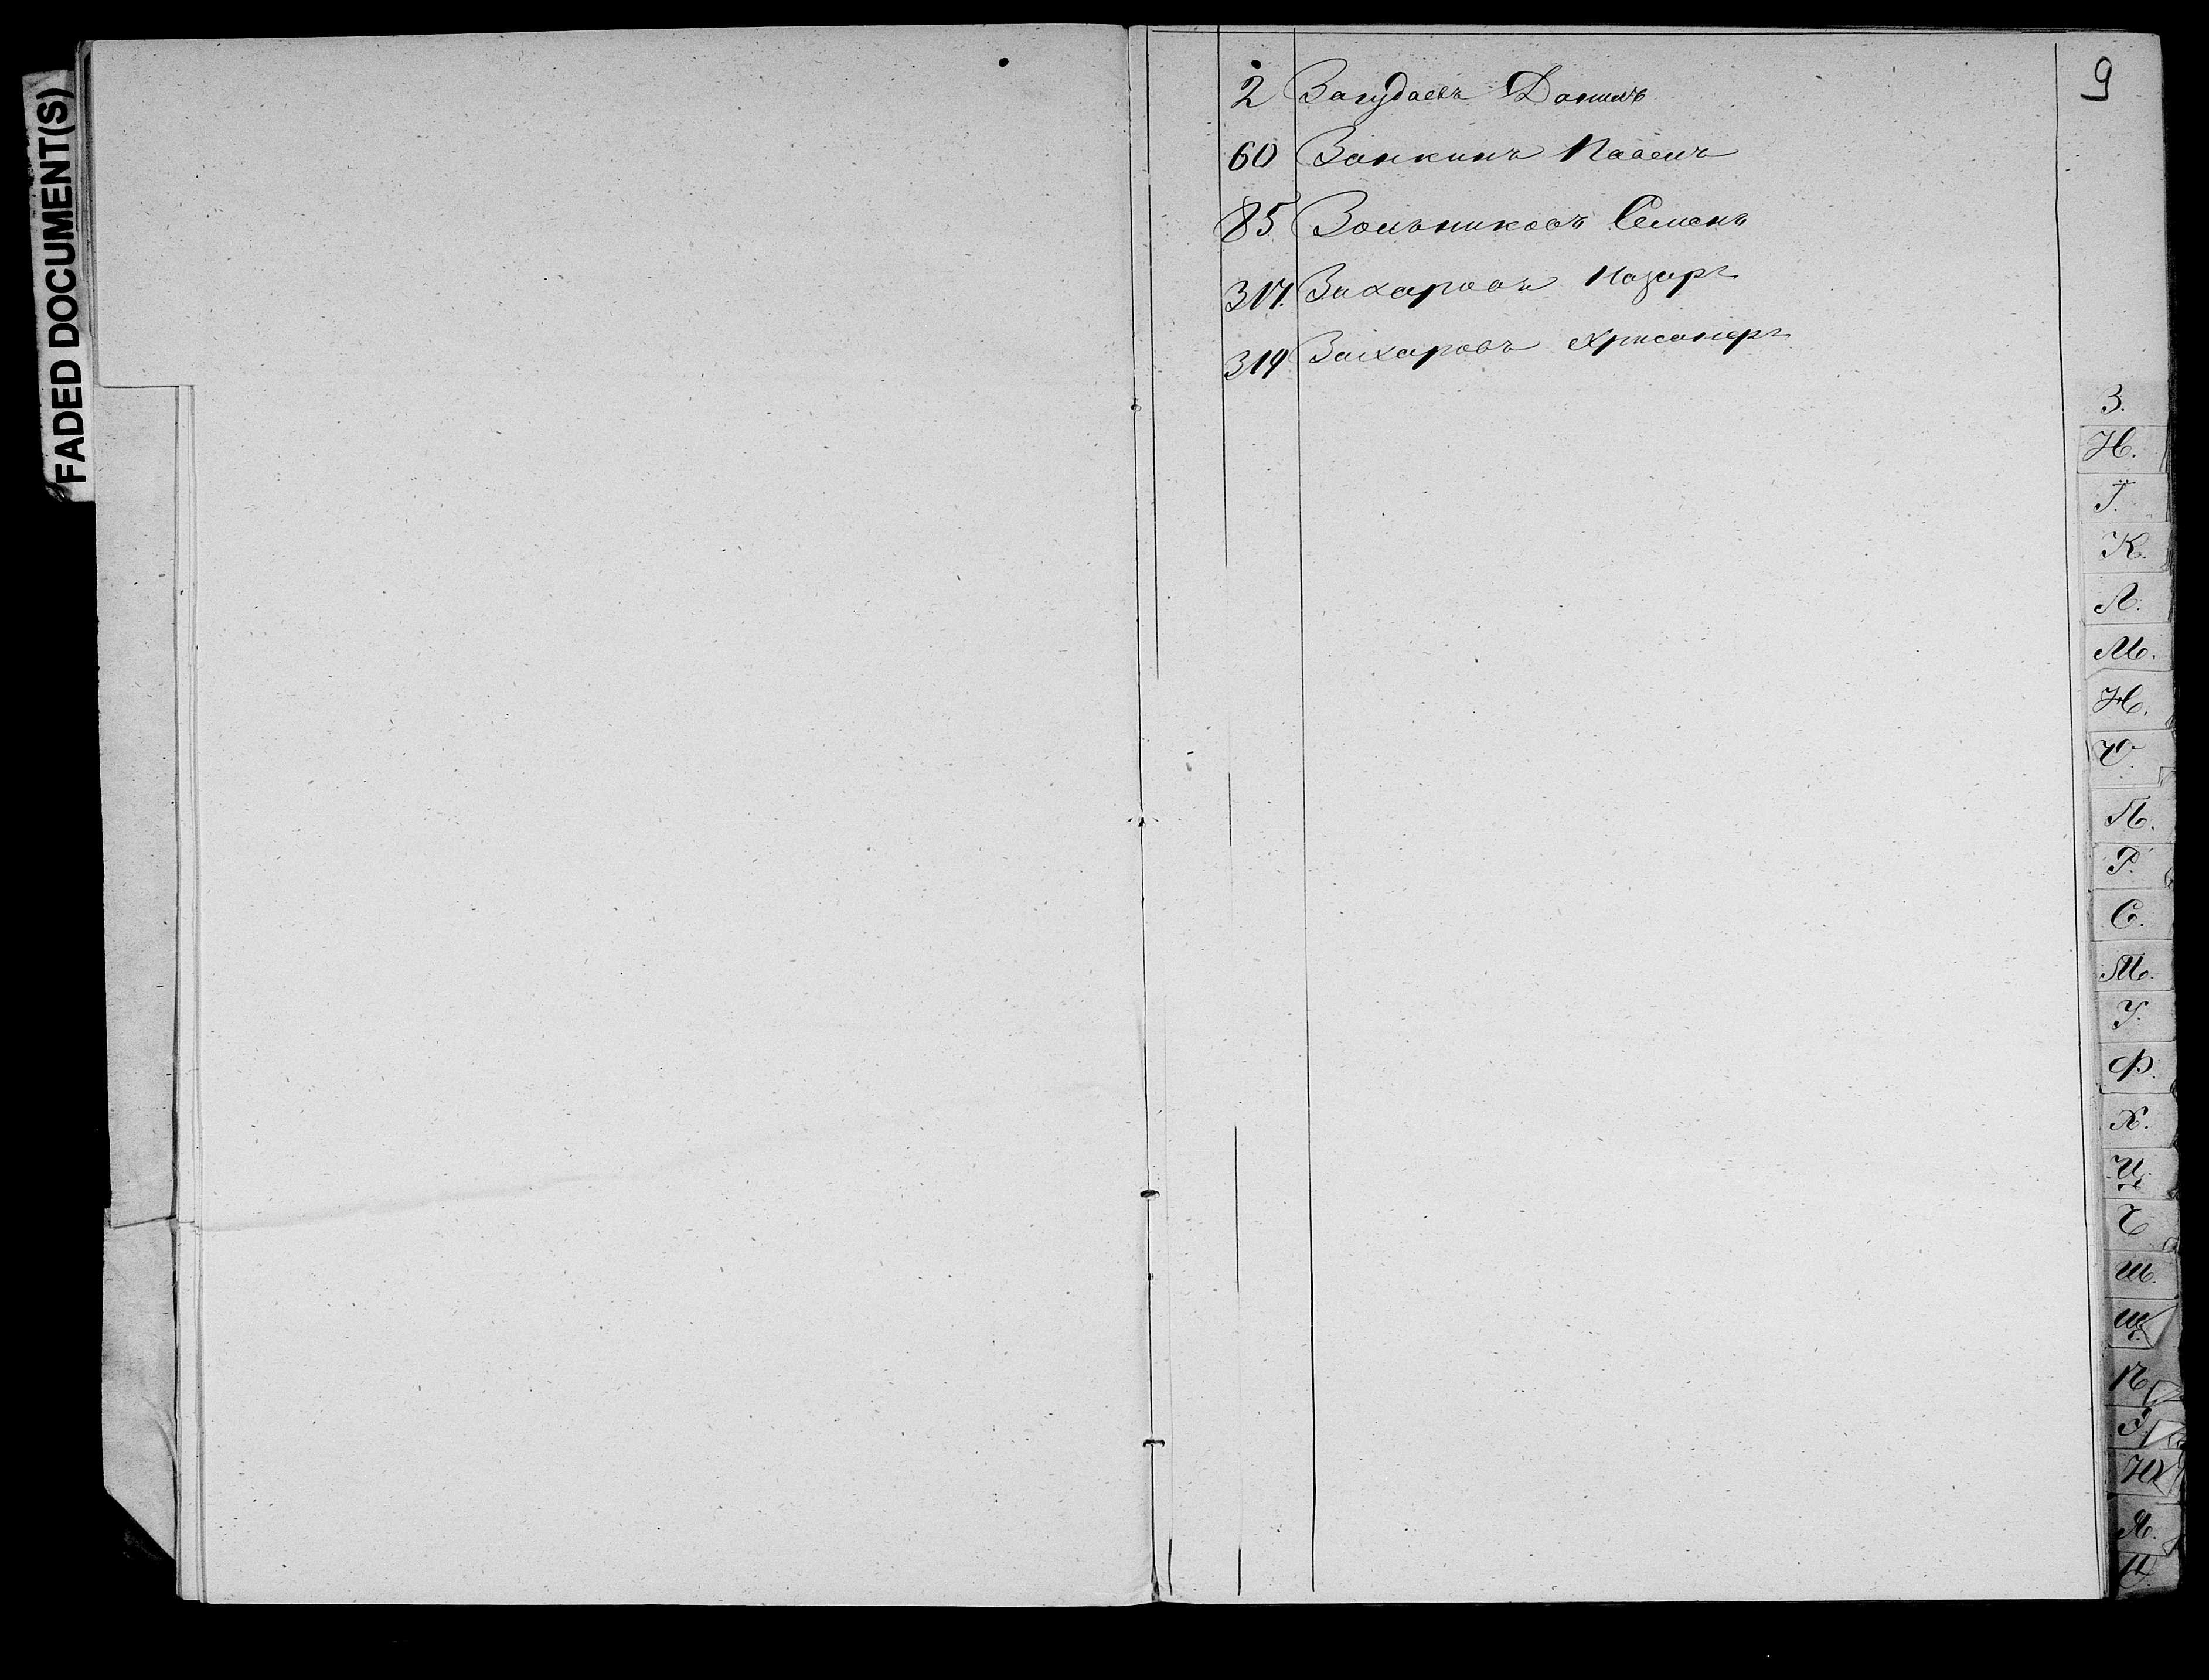 FADED DOCUMENT(S)
9
2 Загудаевъ Данилъ
60 Занкинъ Павелъ
85 Зольниковъ Семенъ
317. Захаровъ Назаръ
319 Захаровъ Хрисанфъ
З.
И.
І.
К.
Л.
М.
Н.
О.
П.
Р.
С.
Т.
У.
Ф.
Х.
Ц.
Ч
Ш.
Щ.
Э.
Ю
Я.